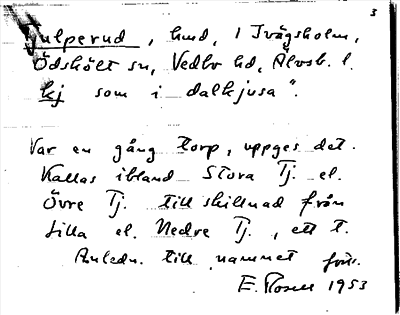 3
Tjulperud, hmd, 1 Tvägsholm,
Ödskölt sn, Vedbo hd, Älvsb. l.
kj som i dalkjusa".
Var en gång torp, uppges det.
Kallas ibland Stora Tj. el.
Övre Tj. till skillnad från
Lilla el. Nedre Tj., ett t.
Anledn. till namnet
E. Rosell 1953